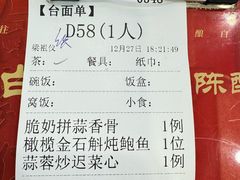 0548
【台面单】
D58(1人)
梁祖仪
12月27日 18:21:49
茶: 餐具: 纸巾:
碗饭: 饭盒:
窝饭: 小食:
脆奶拼蒜香骨 1例
橄榄金石斛炖鲍鱼 1位
蒜蓉炒迟菜心 1例
白
陈酿